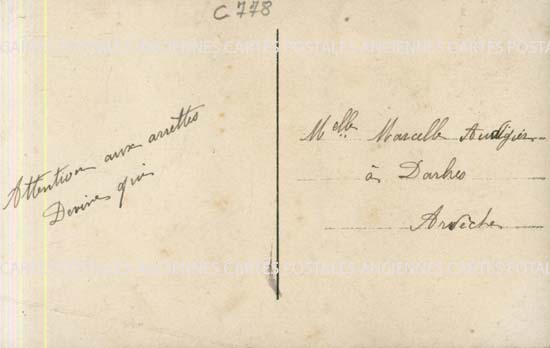 C 778
CARTES POSTALES ANCIENNES CARTES POSTALES ANCIENNES CARTES POSTALES
Attention aux arrettes
Devines qui
Melle Marcelle Audigier
à Darbres
Ardèche
CARTES POSTALES ANCIENNES CARTES POSTALES ANCIENNES CARTES POSTALES